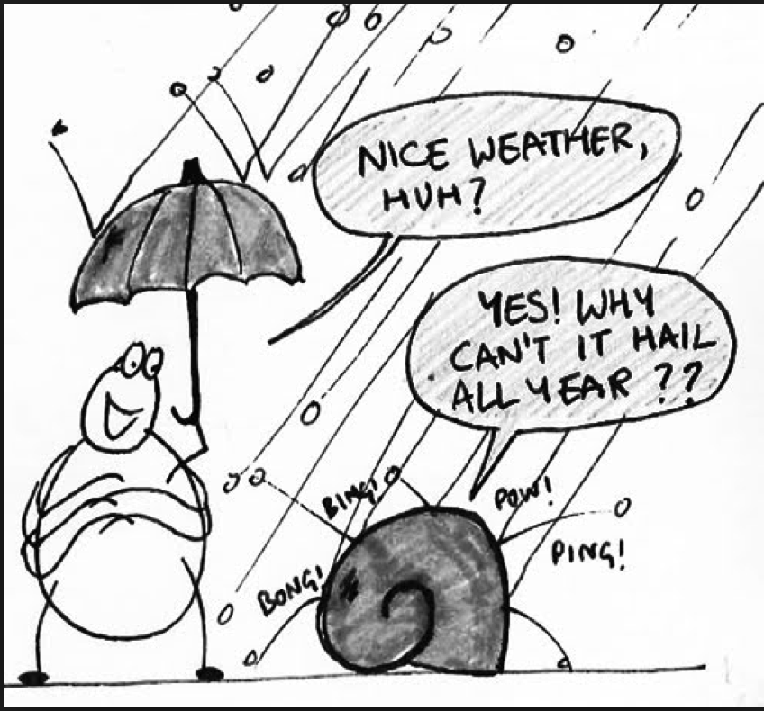 NICE WEATHER,
HUH?
YES! WHY
CAN'T IT HAIL
ALL YEAR ??
BING!
POW!
PING!
BONG!